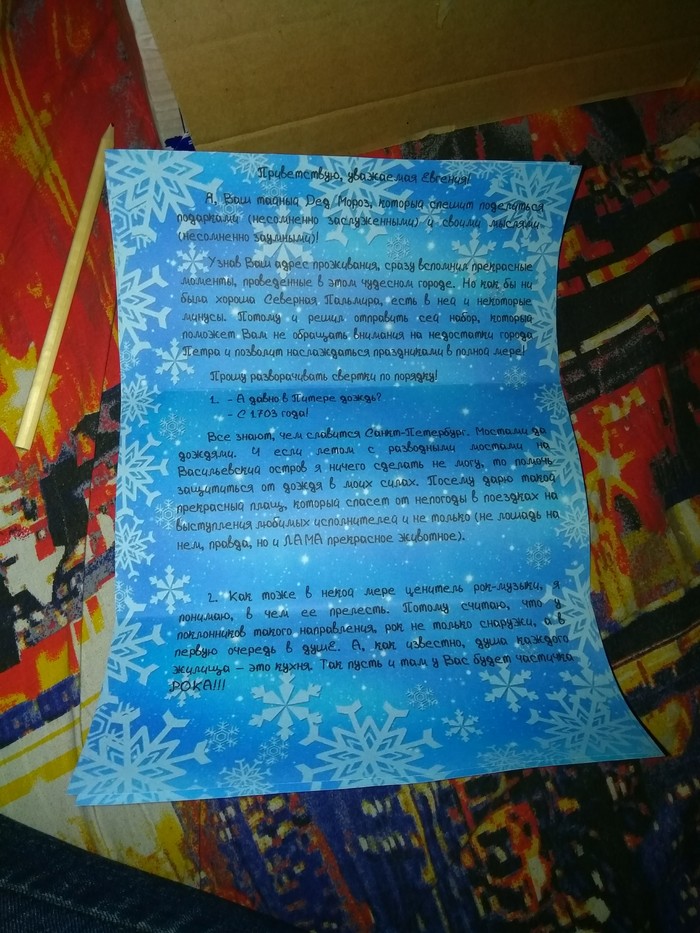 Приветствую, уважаемая Евгения!
Я, Ваш тайный Дед Мороз, который спешит поделиться
подарками (несомненно заслуженными) и своими мыслями
(несомненно заумными)!
Узнав Ваш адрес проживания, сразу вспомнил прекрасные
моменты, проведенные в этом чудесном городе. Но как бы ни
была хороша Северная Пальмира, есть в ней и некоторые
минусы. Потому и решил отправить сей набор, который
поможет Вам не обращать внимания на недостатки города
Петра и позволит наслаждаться праздниками в полной мере!
Прошу разворачивать свертки по порядку!
1. - А давно в Питере дождь?
- С 1703 года!
Все знают, чем славится Санкт-Петербург. Мостами да
дождями. И если летом с разводными мостами на
Васильевский остров я ничего сделать не могу, то помочь
защититься от дождя в моих силах. Посему дарю такой
прекрасный плащ, который спасет от непогоды в поездках на
выступления любимых исполнителей и не только (не лошадь на
нем, правда, но и ЛАМА прекрасное животное).
2. Как тоже в некой мере ценитель рок-музыки, я
понимаю, в чем ее прелесть. Потому считаю, что у
поклонников такого направления, рок не только снаружи, а в
первую очередь в душе. А, как известно, душа каждого
жилища – это кухня. Так пусть и там у Вас будет частичка
РОКА!!!